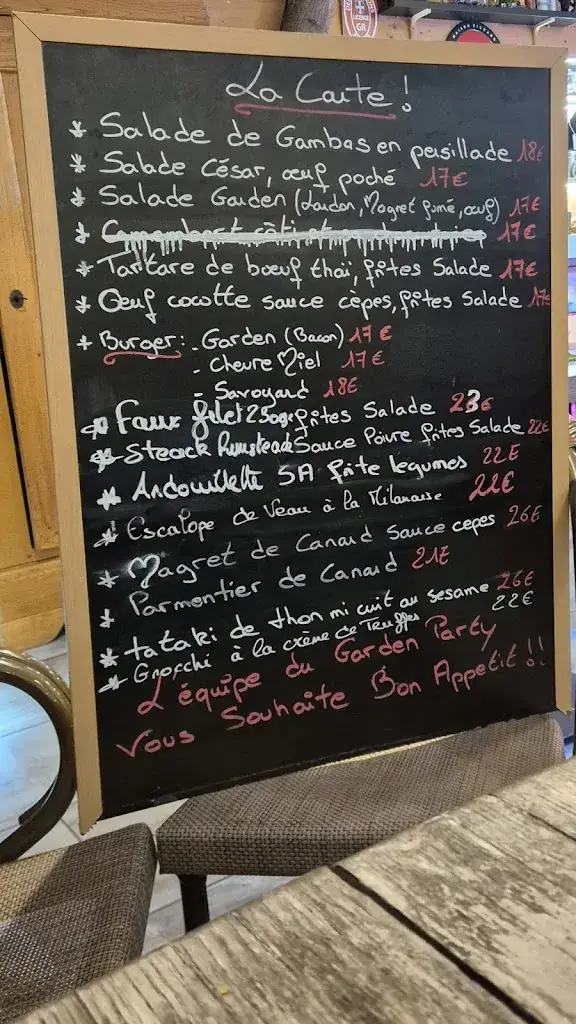 LICENCE
GR
La Carte !
* Salade de Gambas en persillade 18€
* Salade César, œuf poché 17€
* Salade Garden (Lardon, Magret fumé, œuf) 17€
* Camembert rôti et 17€
* Tartare de bœuf thaï, frites Salade 17€
* Œuf cocotte sauce cèpes, frites Salade 17€
* Burger : - Garden (Bacon) 17€
- Chèvre Miel 17€
- Savoyard 18€
* Faux filet 250gr frites Salade 23€
* Steack Rumsteack Sauce Poivre frites Salade 22€
* Andouillette 5A frite legumes 22€
* Escalope de Veau à la Milanaise 22€
* Magret de Canard Sauce cepes 26€
* Parmentier de Canard 21€
* tataki de thon mi cuit au sesame 26€
* Gnocchi à la crème de Truffes 22€
L'équipe du Garden Party
Vous Souhaite Bon Appetit !!